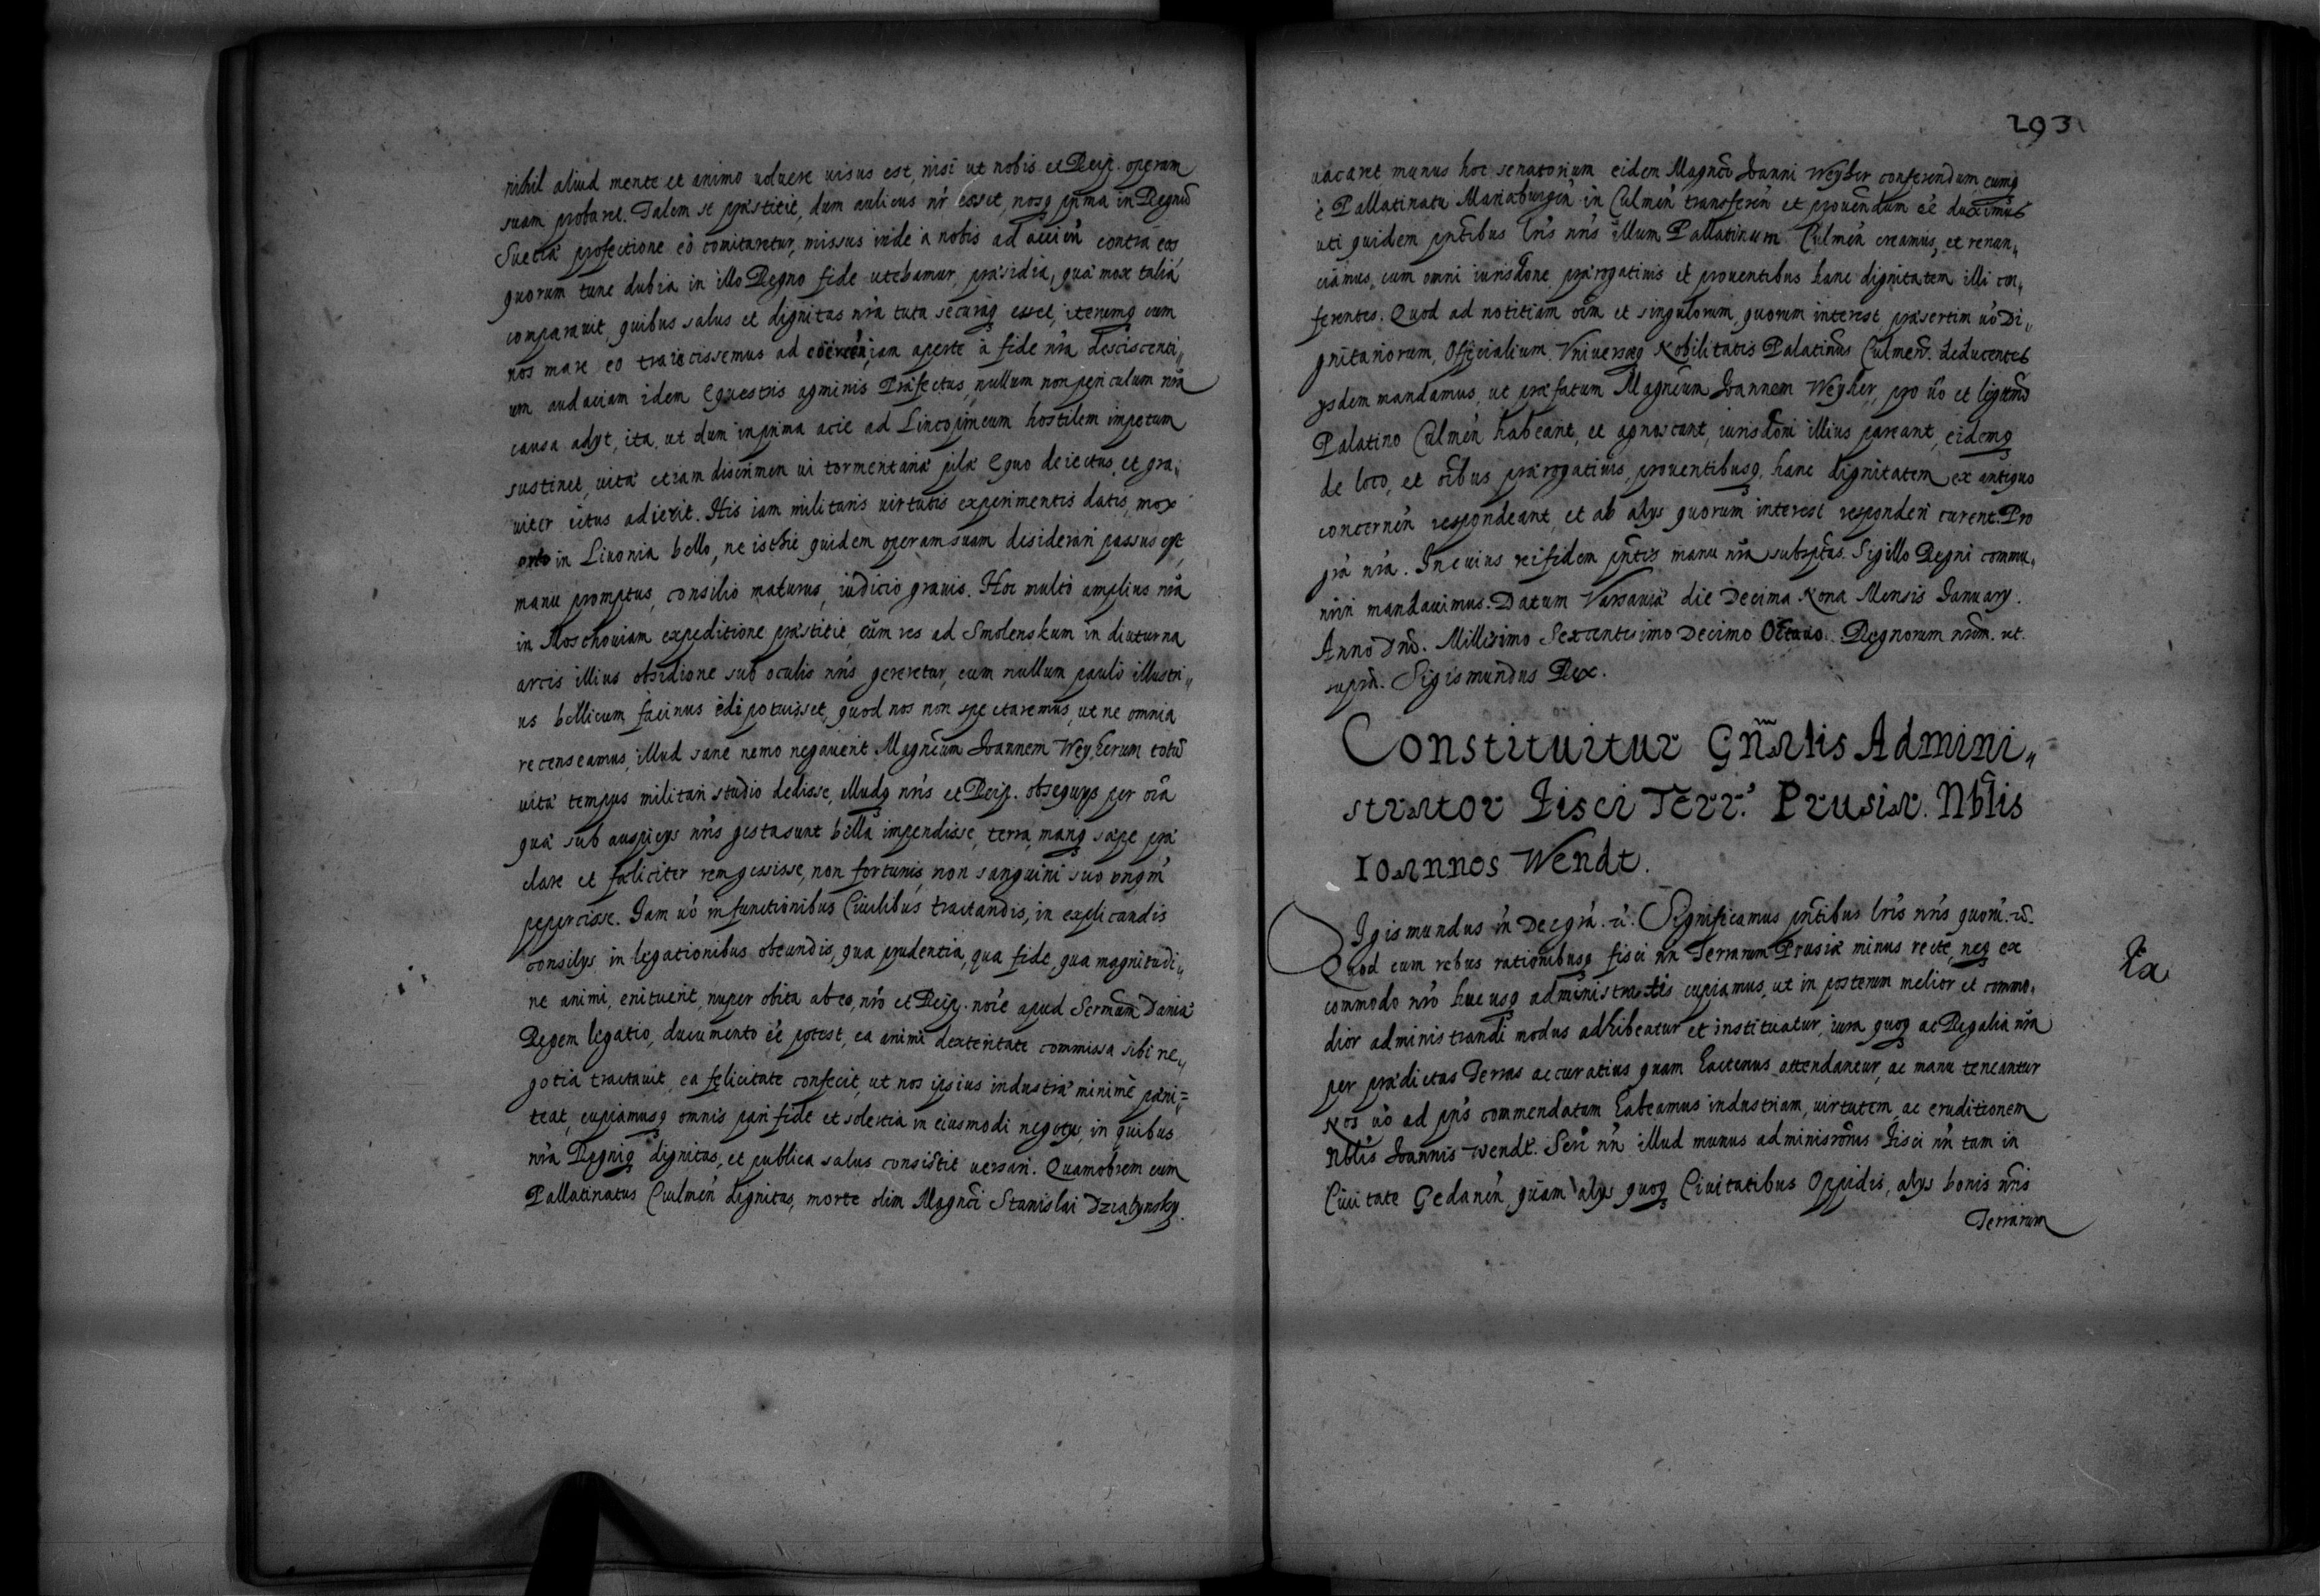 nihil aliud mente et animo voluere visus est, nisi ut nobis et Reip. operam
suam probaret. Talem se præstitit, dum aulicus nr̃ esset, nosq prima in Regnũ
Sueciæ profectione eò comitaretur, missus inde à nobis ad contra eos
quorum tunc dubia in illo Regno fide utebamur, præsidia, quæ mox talia
comparavit, quibus salus et dignitas nr̃a tuta securaq esset, iterumq cum
nos mare eo traiecissemus ad iam aperte à fide nr̃a desciscenti„
um audaciam idem Equestris agminis Præfectus, nullum non periculum nr̃a
causa adyt, ita, ut dum in prima acie ad Lincopincum hostilem impetum
sustinet, vitæ etiam discrimen vi tormentariæ pilæ Equo deiectus, et gra„
viter ictus adierit. His iam militaris virtutis experimentis datis, mox
orto in Livonia bello, ne isthic quidem operam suam desiderari passus est,
manu promptus, consilio maturus, iudicio gravis. Hoc multò amplius nr̃a
in Moschoviam expeditione præstitit, cùm res ad Smolenskum in diuturna
arcis illius obsidione sub oculis nr̃is gereretur, cum nullum paulò illustri„
us bellicum facinus edi potuisset, quod nos non spectaremus, ut ne omnia
recenseamus, illud sane nemo negaverit Magnc̃um Ioannem Weyherum totũ
vitæ tempus militari studio dedisse, illudq nr̃is et Reip. obsequys per oĩa
quæ sub auspicys nr̃is gesta sunt bella impendisse, terra, mariq sæpe præ
clare et fæliciter rem gessisse, non fortunis, non sanguini suo unqm̃
pepercisse. Iam vò in functionibus Civilibus tractandis, in explicandis
consilys, in legationibus obeundis, qua prudentia, qua fide, qua magnitudi„
ne animi, enituerit, nuper obita ab eo, nr̃o et Reip. noĩe apud Serm̃um Daniæ
Regem legatio, documento eẽ potest, ea animi dexteritate commissa sibi ne„
gotia tractavit, ea felicitate confecit, ut nos ipsius industriæ minimè pæni„
teat, cupiamusq omnis pari fide et solertia in eiusmodi negotys, in quibus
nr̃a Regniq dignitas, et publica salus consistit versari. Quamobrem cum
Pallatinatus Culmeñ dignitas, morte olim Magnc̃i Stanislai Dzialynsky
293
vacaret munus hoc senatorium eidem Magnc̃o Ioanni Weyher conferendum, eumq
è Pallatinatu Mariaburgeñ in Culmeñ transfereñ et provehendum eẽ duximus
uti quidem pñtibus lr̃is nr̃is illum Pallatinum Culmeñ creamus, et renun„
ciamus, cum omni iurisdoñe prærogativis et proventibus hanc dignitatem illi con„
ferentes. Quod ad notitiam oĩm et singulorum, quorum interest, præsertim vò Di„
gnitariorum, Officialium Universæq Nobilitatis Palatinatus Culmeñ. deducentes
ysdem mandamus, ut præfatum Magnc̃um Ioannem Weyher, pro vo et legitimo
Palatino Culmeñ habeant, et agnoscant, iurisdoñi illius pareant, eidemq
de loco, et oĩbus prærogativis, proventibusq, hanc dignitatem ex antiquo
concerneñ respondeant, et ab alys quorum interest responderi curent. Pro
grã nr̃a. In cuius rei fidem pñtes manu nr̃a subsptas. Sigillo Regni commu„
niri mandavimus. Datum Varsaviæ die Decima Nona Mensis Ianuary.
Anno Dnĩ. Millesimo Sexcentesimo Decimo Octavo. Regnorum nr̃orm. ut.
supra. Sigismundus Rex.
Constituitur Gñralis Admini„
strator Fisci Terr. Prusiæ. Nblis
Ioannes Wendt.
Sigismundus III Dei grã. &. Significamus pñtibus lr̃is nr̃is quorũ. &.
Quod cum rebus rationibusq fisci nr̃i Terrarum Prusiæ minus recte, neq ex
commodo nr̃o hucusq administratis cupiamus, ut in posterum melior et commo„
dior administrandi modus adhibeatur et instituatur, iura quoq ac Regalia nr̃a
per prædictas Terras accuratius quam hactenus attendantur, ac manu teneantur
Nos vò ad commendatam habeamus industriam, virtutem, ac eruditionem
Nblis Ioannis Wendt. nr̃i illud munus administroñis Fisci nr̃i tam in
Civitate Gedaneñ, quam alys quoq Civitatibus Oppidis, alys bonis nr̃is
Terrarum